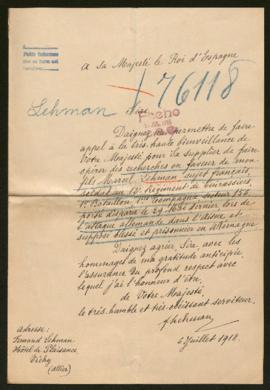 A sa Majesté le Roi d'Espagne
76118
Lehman
Sire
Daignez me permettre de faire
appel à la très haute bienveillance de
Votre Majesté pour La supplier de faire
opérer des recherches en faveur de mon
fils Marcel Lehman sujet français,
soldat au 12e Régiment de Cuirassiers,
1er Bataillon, Compagnie secteur 152
porté disparu le 29 Mai dernier lors de
l'attaque allemande dans l'Aisne et
supposé blessé et prisonnier en Allemagne
Daignez agréer, Sire, avec les
hommages de ma gratitude anticipée,
l'assurance du profond respect avec
lequel j'ai l'honneur d'être,
de Votre Majesté,
le très humble et très obéissant serviteur.
6 Juillet 1918.
Adresse:
Fernand Lehman
Hôtel de Plaisance,
Vichy
(Allier)